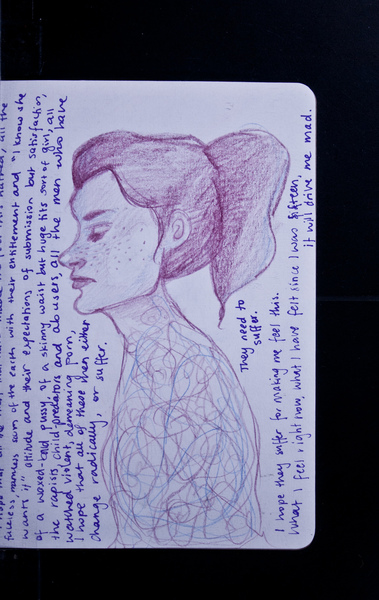 hatred, all the
faceless, nameless scum of the earth with their entitlement and "I know she
wants it" attitude and their expectations of submission but satisfaction,
of a waxed-bald pussy of a skinny waist but huge tits sort of girl, all
the rapists, child-predators and abusers, all the men who have
watched violent, demeaning porn,
I hope that all of these men either
change radically, or suffer.
They need to
suffer.
I hope they suffer for making me feel this.
What I feel right now, what I have felt since I was sixteen,
it will drive me mad.